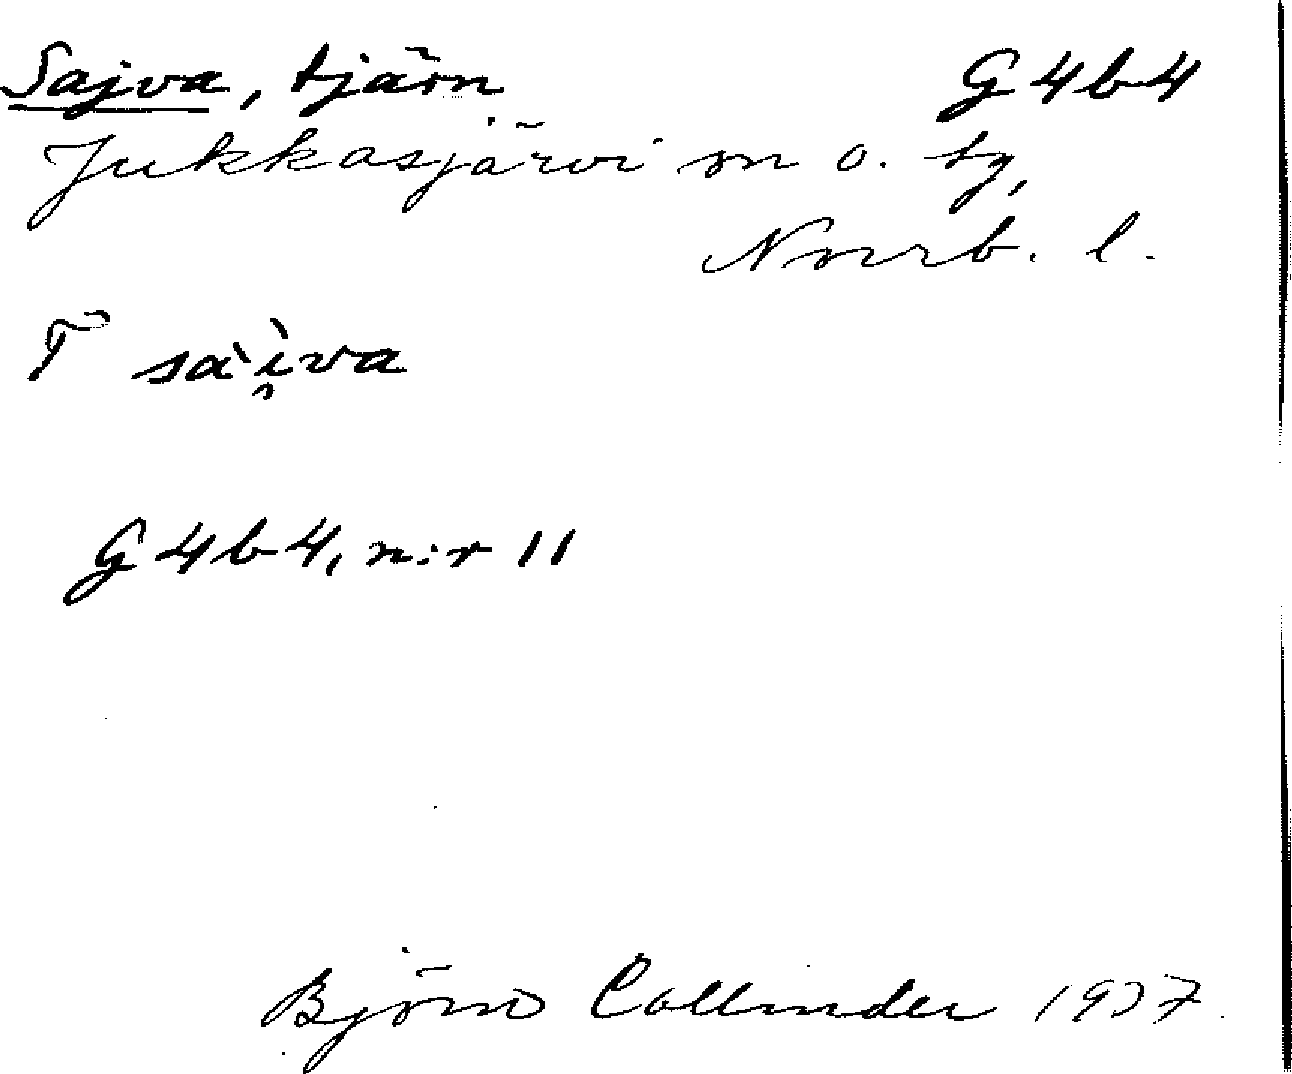 Sajva, tjärn G4b4
Jukkasjärvi sn o. tg,
Norrb. l.
T sàì̯va
G4b4, n:r 11
Björn Collinder 1937